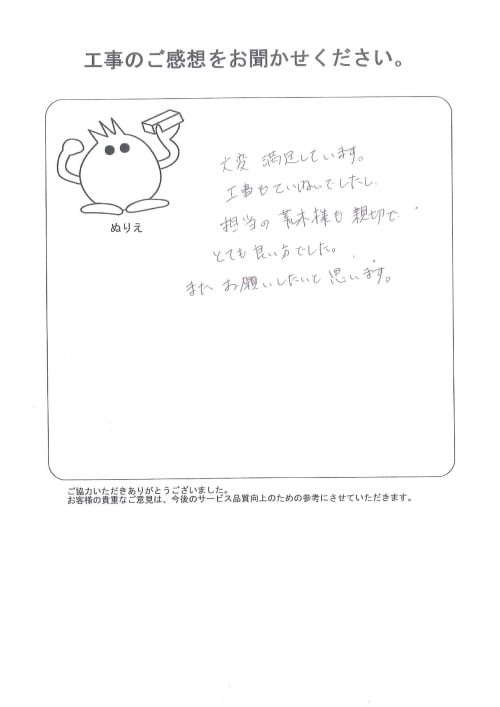 工事のご感想をお聞かせください。
ぬりえ
大変 満足しています。
工事もていねいでしたし
担当の 荒木様も 親切で
とても 良い方でした。
また お願いしたいと 思います。
ご協力いただきありがとうございました。
お客様の貴重なご意見は、今後のサービス品質向上のための参考にさせていただきます。